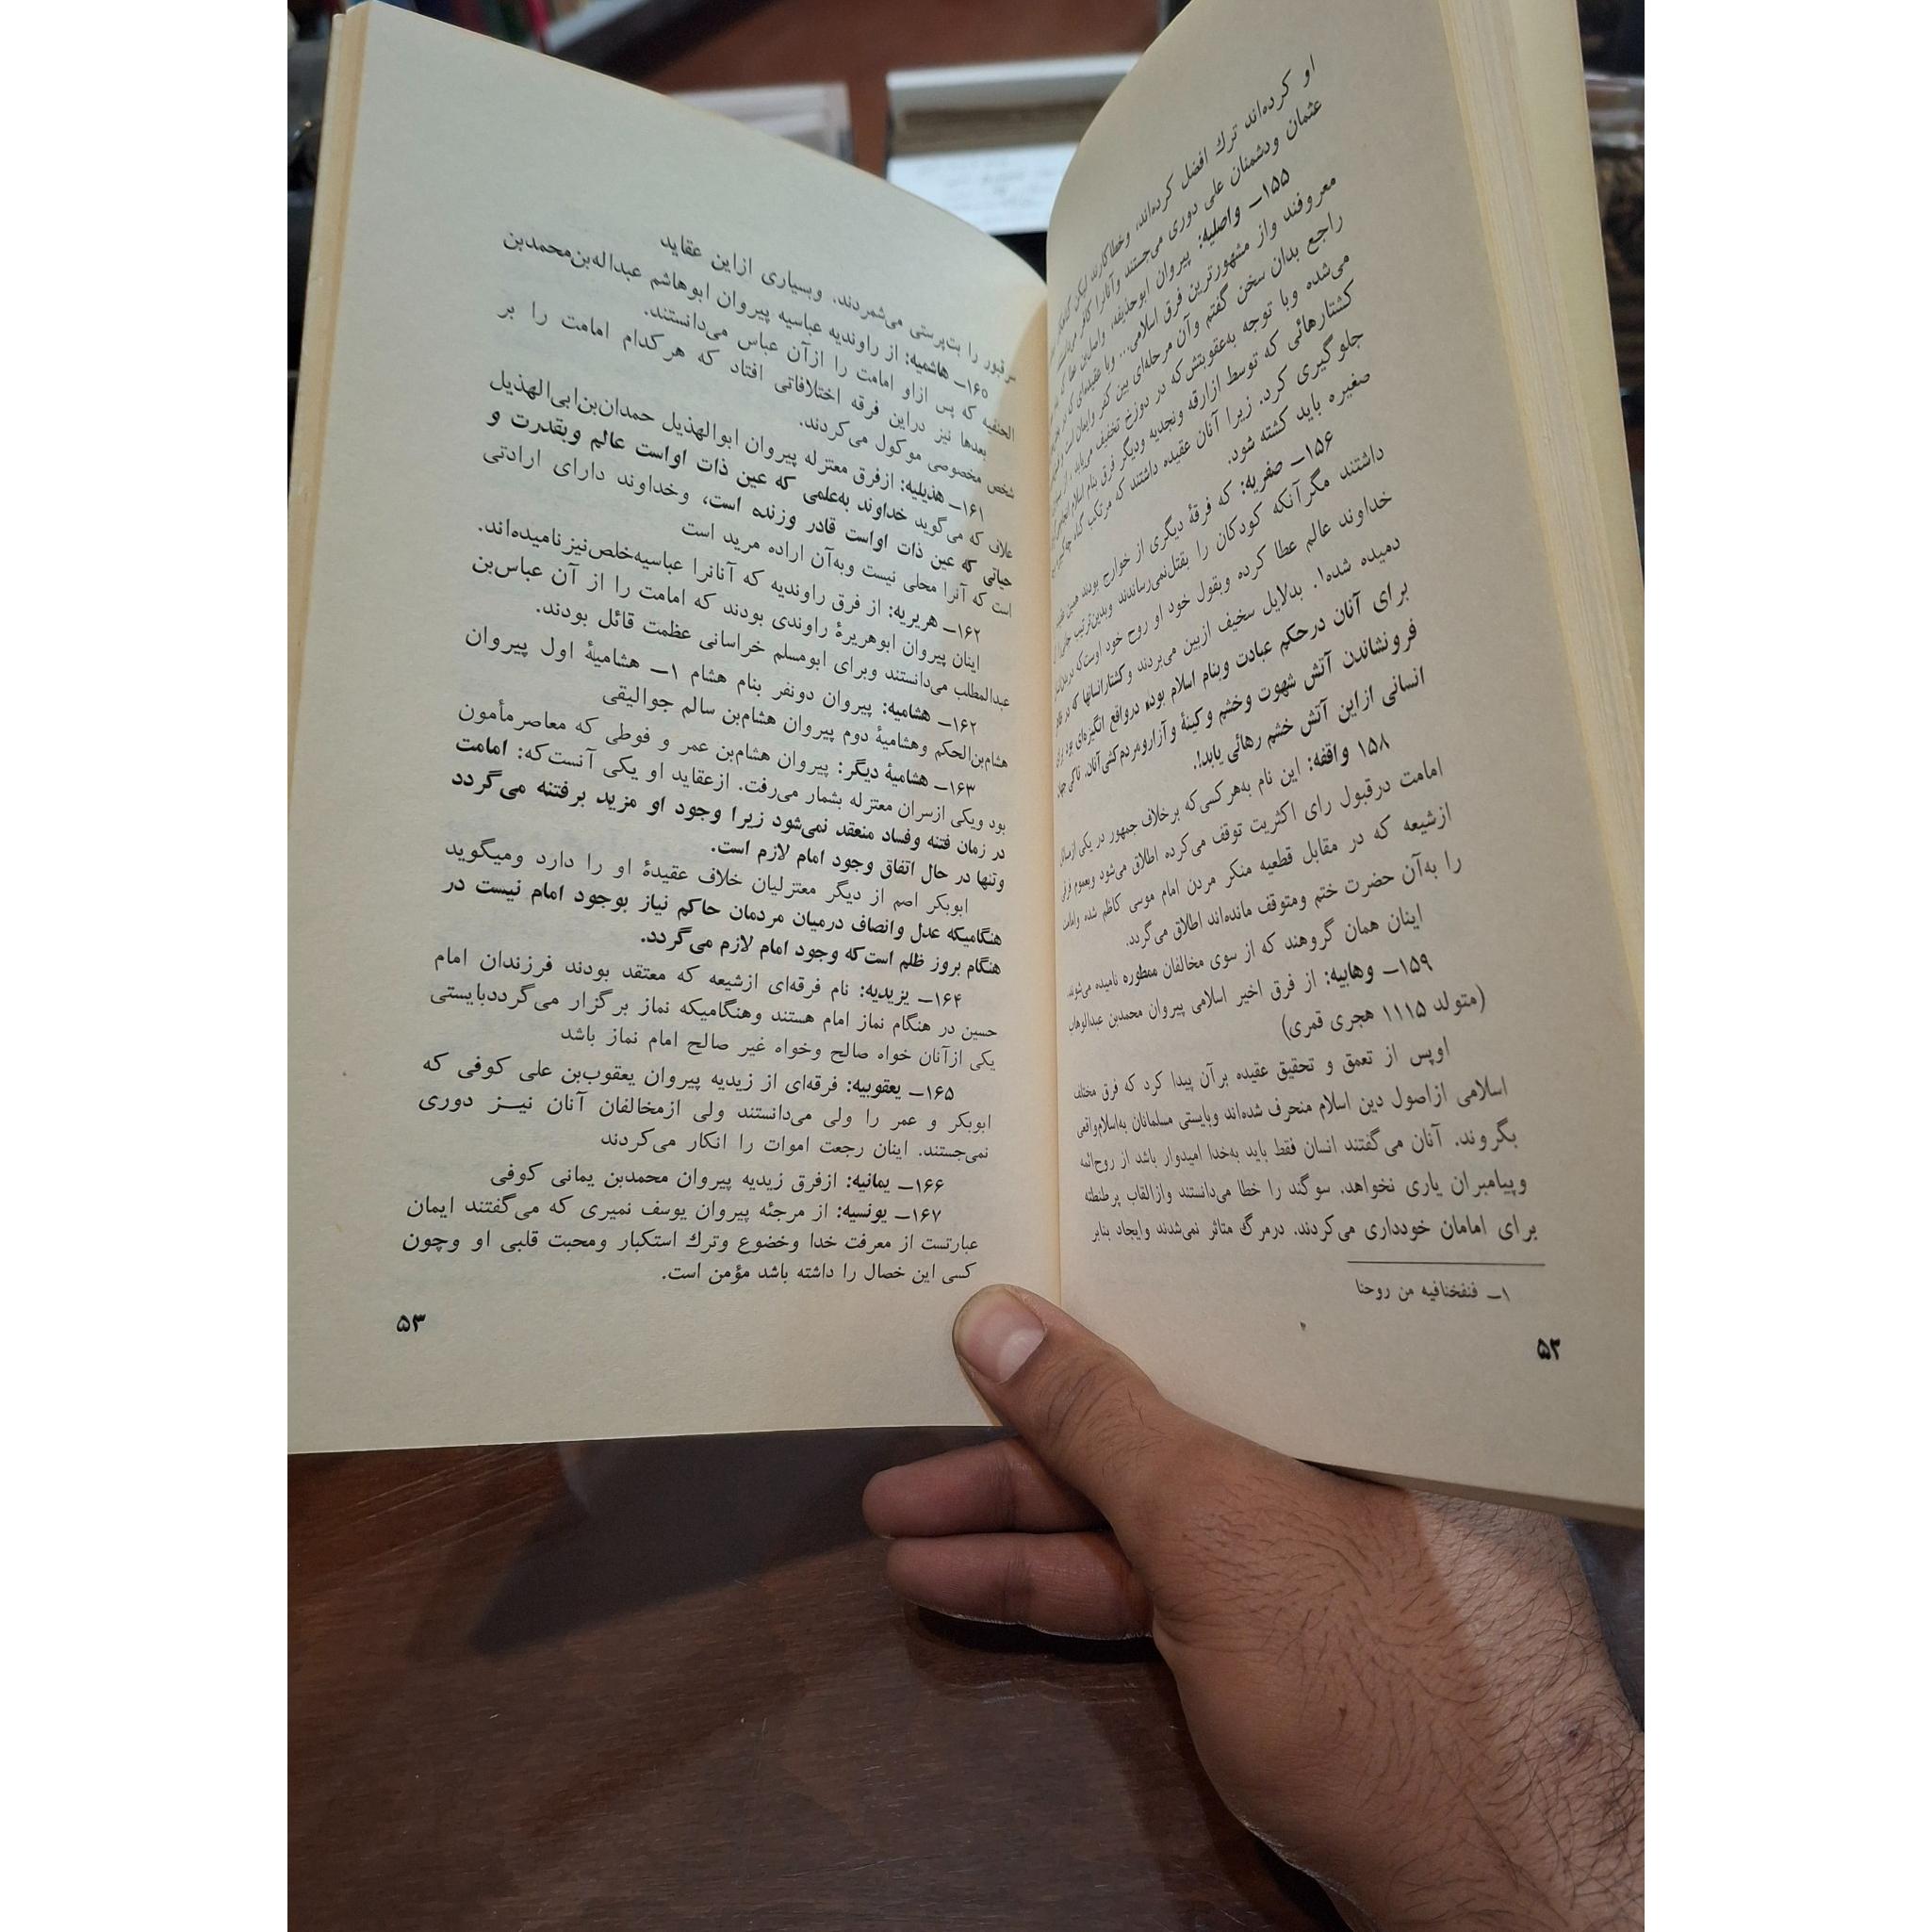 او کرده‌اند ترك افضل کرده‌اند، وخطاکارند لیکن
عثمان ودشمنان علی دوری می‌جستند وآنانرا کافر
۱۵۵ـ واصلیه: پیروان ابوحذیفه، واصل‌بن عطا که
معروفند واز مشهورترین فرق اسلامی... وبا عقیده‌ای که
راجع بدان سخن گفتم وآن مرحله‌ای بین کفر وایمان است
می‌شده وبا توجه به‌عقوبتش‌که در دوزخ تخفیف می‌یابد، از
کشتارهائی که توسط ازارقه ونجدیه ودیگر فرق بنام اسلام
جلوگیری کرد. زیرا آنان عقیده داشتند که مرتکب گناه
صغیره باید کشته شود.
۱۵۶ـ صفریه: که فرقهٔ دیگری از خوارج بودند همین
داشتند مگرآنکه کودکان را بقتل‌نمی‌رساندند وبدین‌ترتیب
خداوند عالم عطا کرده وبقول خود او روح خود اوست‌که
دمیده شده۱. بدلایل سخیف ازبین می‌بردند وکشتارانسانها که در
برای آنان درحکم عبادت وبنام اسلام بوده درواقع انگیزه‌ای بود برای
فرونشاندن آتش شهوت وخشم وکینهٔ وآزارومردم‌کشی‌آنان. تاکی
انسانی ازاین آتش خشم رهائی یابد!.
۱۵۸ واقفه: این نام به‌هرکسی‌که برخلاف جمهور در یکی ازمسائل
امامت درقبول رای اکثریت توقف می‌کرده اطلاق می‌شود وبعموم فرقی
ازشیعه که در مقابل قطعیه منکر مردن امام موسی کاظم شده وامامت
را به‌آن حضرت ختم ومتوقف مانده‌اند اطلاق می‌گردد.
اینان همان گروهند که از سوی مخالفان ممطوره نامیده می‌شوند.
۱۵۹ـ وهابیه: از فرق اخیر اسلامی پیروان محمدبن عبدالوهاب
(متولد ۱۱۱۵ هجری قمری)
اوپس از تعمق و تحقیق عقیده برآن پیدا کرد که فرق مختلف
اسلامی ازاصول دین اسلام منحرف شده‌اند وبایستی مسلمانان به‌اسلام‌واقعی
بگروند. آنان می‌گفتند انسان فقط باید به‌خدا امیدوار باشد از روح‌ائمه
وپیامبران یاری نخواهد. سوگند را خطا می‌دانستند وازالقاب پرطنطنه
برای امامان خودداری می‌کردند. درمرگ متاثر نمی‌شدند وایجاد بنابر
۱ـ فنفخنافیه من روحنا
۵۲
سرقبور را بت‌پرستی می‌شمردند. وبسیاری ازاین عقاید
۱۶۰ـ هاشمیه: از راوندیه عباسیه پیروان ابوهاشم عبداله‌بن‌محمدبن
الحنفیه که پس ازاو امامت را ازآن عباس می‌دانستند.
بعدها نیز دراین فرقه اختلافاتی افتاد که هرکدام امامت را بر
شخص مخصوصی موکول می‌کردند.
۱۶۱ـ هذیلیه: ازفرق معتزله پیروان ابوالهذیل حمدان‌بن‌ابی‌الهذیل
علاف که می‌گوید خداوند به‌علمی که عین ذات اواست عالم وبقدرت و
حیاتی که عین ذات اواست قادر وزنده است، وخداوند دارای ارادتی
است که آنرا محلی نیست وبه‌آن اراده مرید است
۱۶۲ـ هریریه: از فرق راوندیه که آنانرا عباسیه‌خلص‌نیزنامیده‌اند.
اینان پیروان ابوهریرهٔ راوندی بودند که امامت را از آن عباس‌بن
عبدالمطلب می‌دانستند وبرای ابومسلم خراسانی عظمت قائل بودند.
۱۶۲ـ هشامیه: پیروان دونفر بنام هشام ۱ـ هشامیهٔ اول پیروان
هشام‌بن‌الحکم وهشامیهٔ دوم پیروان هشام‌بن سالم جوالیقی
۱۶۳ـ هشامیهٔ دیگر: پیروان هشام‌بن عمر و فوطی که معاصرمأمون
بود ویکی ازسران معتزله بشمار می‌رفت. ازعقاید او یکی آنست‌که: امامت
در زمان فتنه وفساد منعقد نمی‌شود زیرا وجود او مزید برفتنه می‌گردد
وتنها در حال اتفاق وجود امام لازم است.
ابوبکر اصم از دیگر معتزلیان خلاف عقیدهٔ او را دارد ومیگوید
هنگامیکه عدل وانصاف درمیان مردمان حاکم نیاز بوجود امام نیست در
هنگام بروز ظلم است‌که وجود امام لازم می‌گردد.
۱۶۴ـ یزیدیه: نام فرقه‌ای ازشیعه که معتقد بودند فرزندان امام
حسین در هنگام نماز امام هستند وهنگامیکه نماز برگزار می‌گرددبایستی
یکی ازآنان خواه صالح وخواه غیر صالح امام نماز باشد
۱۶۵ـ یعقوبیه: فرقه‌ای از زیدیه پیروان یعقوب‌بن علی کوفی که
ابوبکر و عمر را ولی می‌دانستند ولی ازمخالفان آنان نیــز دوری
نمی‌جستند. اینان رجعت اموات را انکار می‌کردند
۱۶۶ـ یمانیه: ازفرق زیدیه پیروان محمدبن یمانی کوفی
۱۶۷ـ یونسیه: از مرجئه پیروان یوسف نمیری که می‌گفتند ایمان
عبارتست از معرفت خدا وخضوع وترك استکبار ومحبت قلبی او وچون
کسی این خصال را داشته باشد مؤمن است.
۵۳